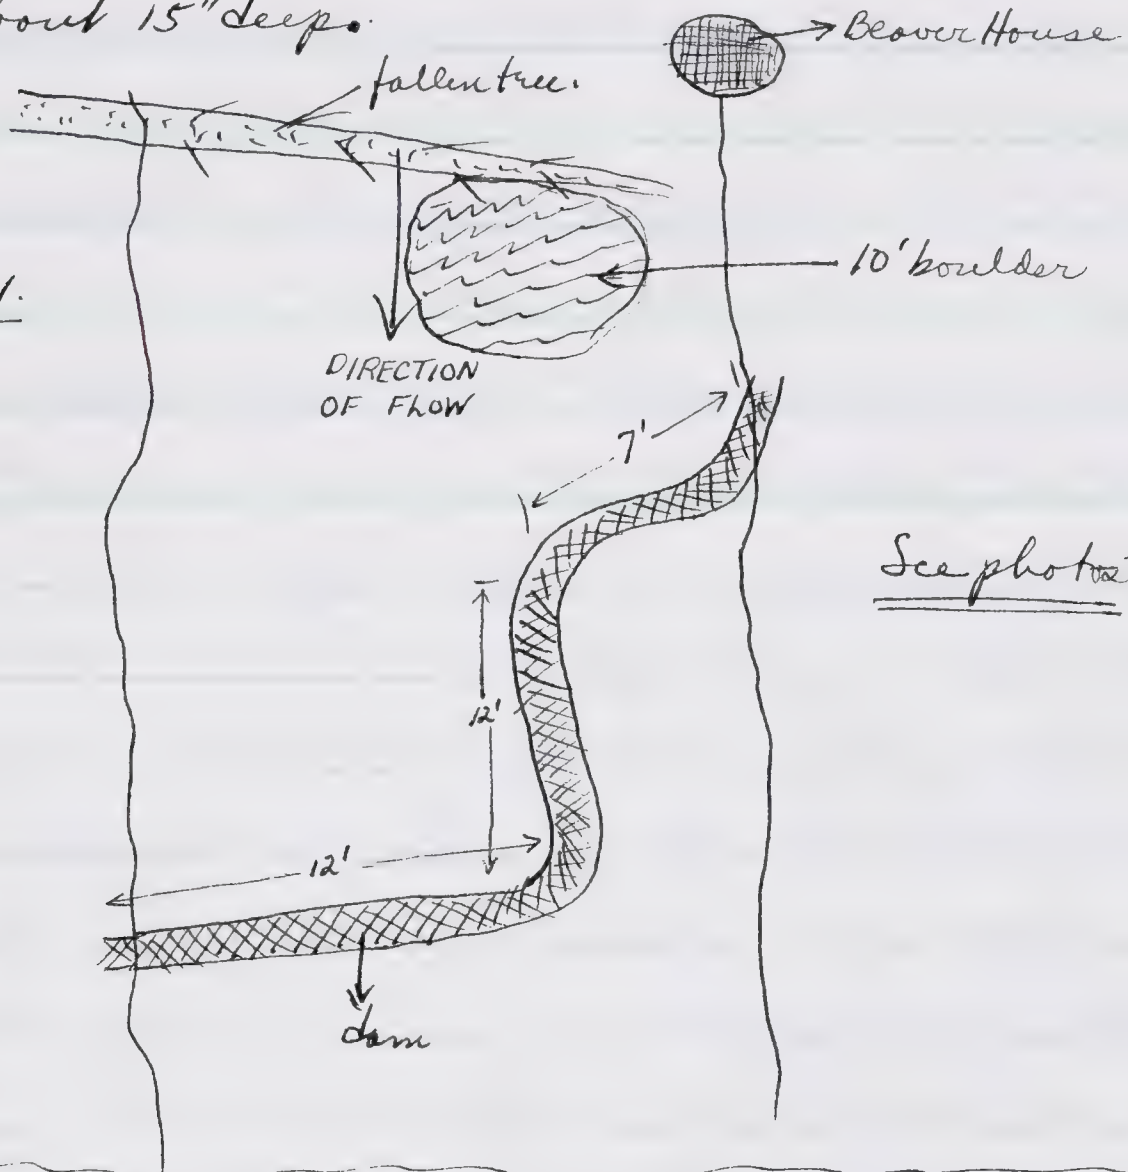 15" deep.
Beaver House
fallen tree.
10' boulder
DIRECTION
OF FLOW
7'
See photos
12'
12'
dam